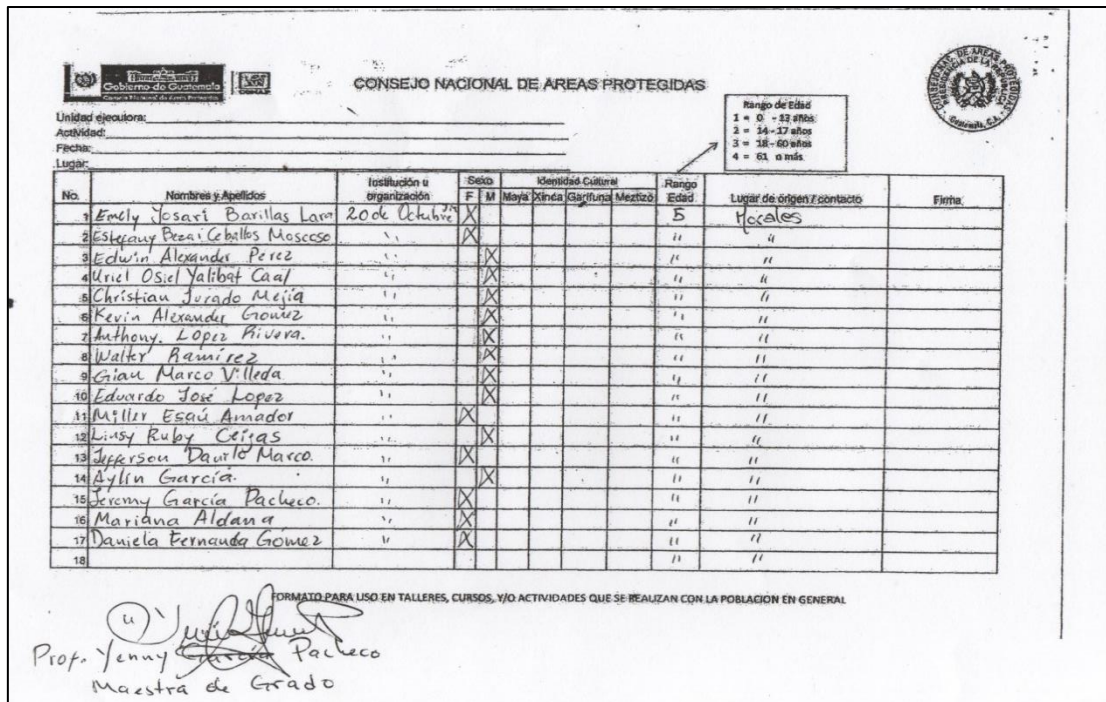 Gobierno de Guatemala
CONSEJO NACIONAL DE AREAS PROTEGIDAS
Rango de Edad
1 = 0 - 13 años
2 = 14 - 17 años
3 = 18 - 60 años
4 = 61 o más
Unidad ejecutora:
Actividad:
Fecha:
Lugar:
No. Nombres y Apellidos Institución u organización Sexo F M Identidad Cultural Maya Xinca Garifuna Meztizo Rango Edad Lugar de origen / contacto Firma
1 Emely Josari Barillas Lara 20 de Octubre X 5 Morales
2 Estefany Bezai Ceballos Moscoso '' X '' ''
3 Edwin Alexander Perez '' X '' ''
4 Uriel Osiel Yalibat Caal '' X '' ''
5 Christian Jurado Mejía '' X '' ''
6 Kevin Alexander Gomez '' X '' ''
7 Anthony. Lopez Rivera. '' X '' ''
8 Walter Ramirez '' X '' ''
9 Gian Marco Villeda '' X '' ''
10 Eduardo José Lopez '' X '' ''
11 Miller Esaú Amador '' X '' ''
12 Linsy Ruby '' X '' ''
13 Jefferson Danilo Marco. '' X '' ''
14 Aylin García. '' X '' ''
15 Jeremy García Pacheco. '' X '' ''
16 Mariana Aldana '' X '' ''
17 Daniela Fernanda Gomez '' X '' ''
18 '' ''
FORMATO PARA USO EN TALLERES, CURSOS, Y/O ACTIVIDADES QUE SE REALIZAN CON LA POBLACION EN GENERAL
Prof. Yenny García Pacheco
Maestra de Grado